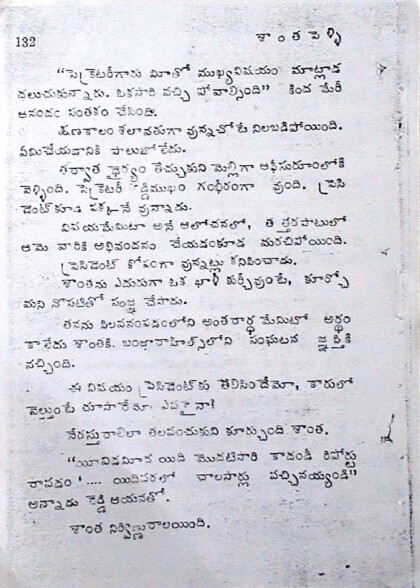 132
శాంత పెళ్ళి
"సెక్రెటరీగారు మీతో ముఖ్యవిషయం మాట్లాడ
దలుచుకున్నారు. ఒకసారి వచ్చి పోవాల్సింది" కింద మేరీ
ఆనందం సంతకం చేసింది.
క్షణకాలం శిలావరుగా వున్నచోటే నిలబడిపోయింది.
ఏమిచేయడానికి పాలుబోలేదు.
తర్వాత ధైర్యం తెచ్చుకుని మెల్లిగా ఆఫీసురూంలోకి
వెళ్ళింది. సెక్రెటరీ రెడ్డిముఖం గంభీరంగా వుంది. ప్రెసి
డెంట్ కూడా పక్కనే వున్నాడు.
విషయమేమిటా అనే ఆలోచనలో, తత్తరపాటులో
ఆమె వారికి అభివందనం చేయడంకూడ మరచిపోయింది.
ప్రెసిడెంట్ కోపంగా వున్నట్లు కనిపించాడు.
శాంతను ఎదురుగా ఒక ఖాళీ కుర్చీవుంటే, కూర్చో
మని నొసటితో సంజ్ఞ చేసాడు.
తనను పిలవనంపడంలోని అంతరార్థ మేమిటో అర్థం
కాలేదు శాంతకి. బంజారాహిల్స్‌లోని సంఘటన జ్ఞప్తికి
వచ్చింది.
ఈ విషయం ప్రెసిడెంట్‌కు తెలిసిందేమో, కారులో
వెల్తుంటే చూసారేమో ఎవరైనా!
నేరస్తురాలిలా తలవంచుకుని కూర్చుంది శాంత.
"మీమీదయిది మొదటిసారి కాదండీ రిపోర్టు
రావడం '.... యిదివరలో చాలసార్లు వచ్చినయ్యండి"
అన్నాడు రెడ్డి ఆయనతో.
శాంత నిర్విణ్ణురాలయింది.